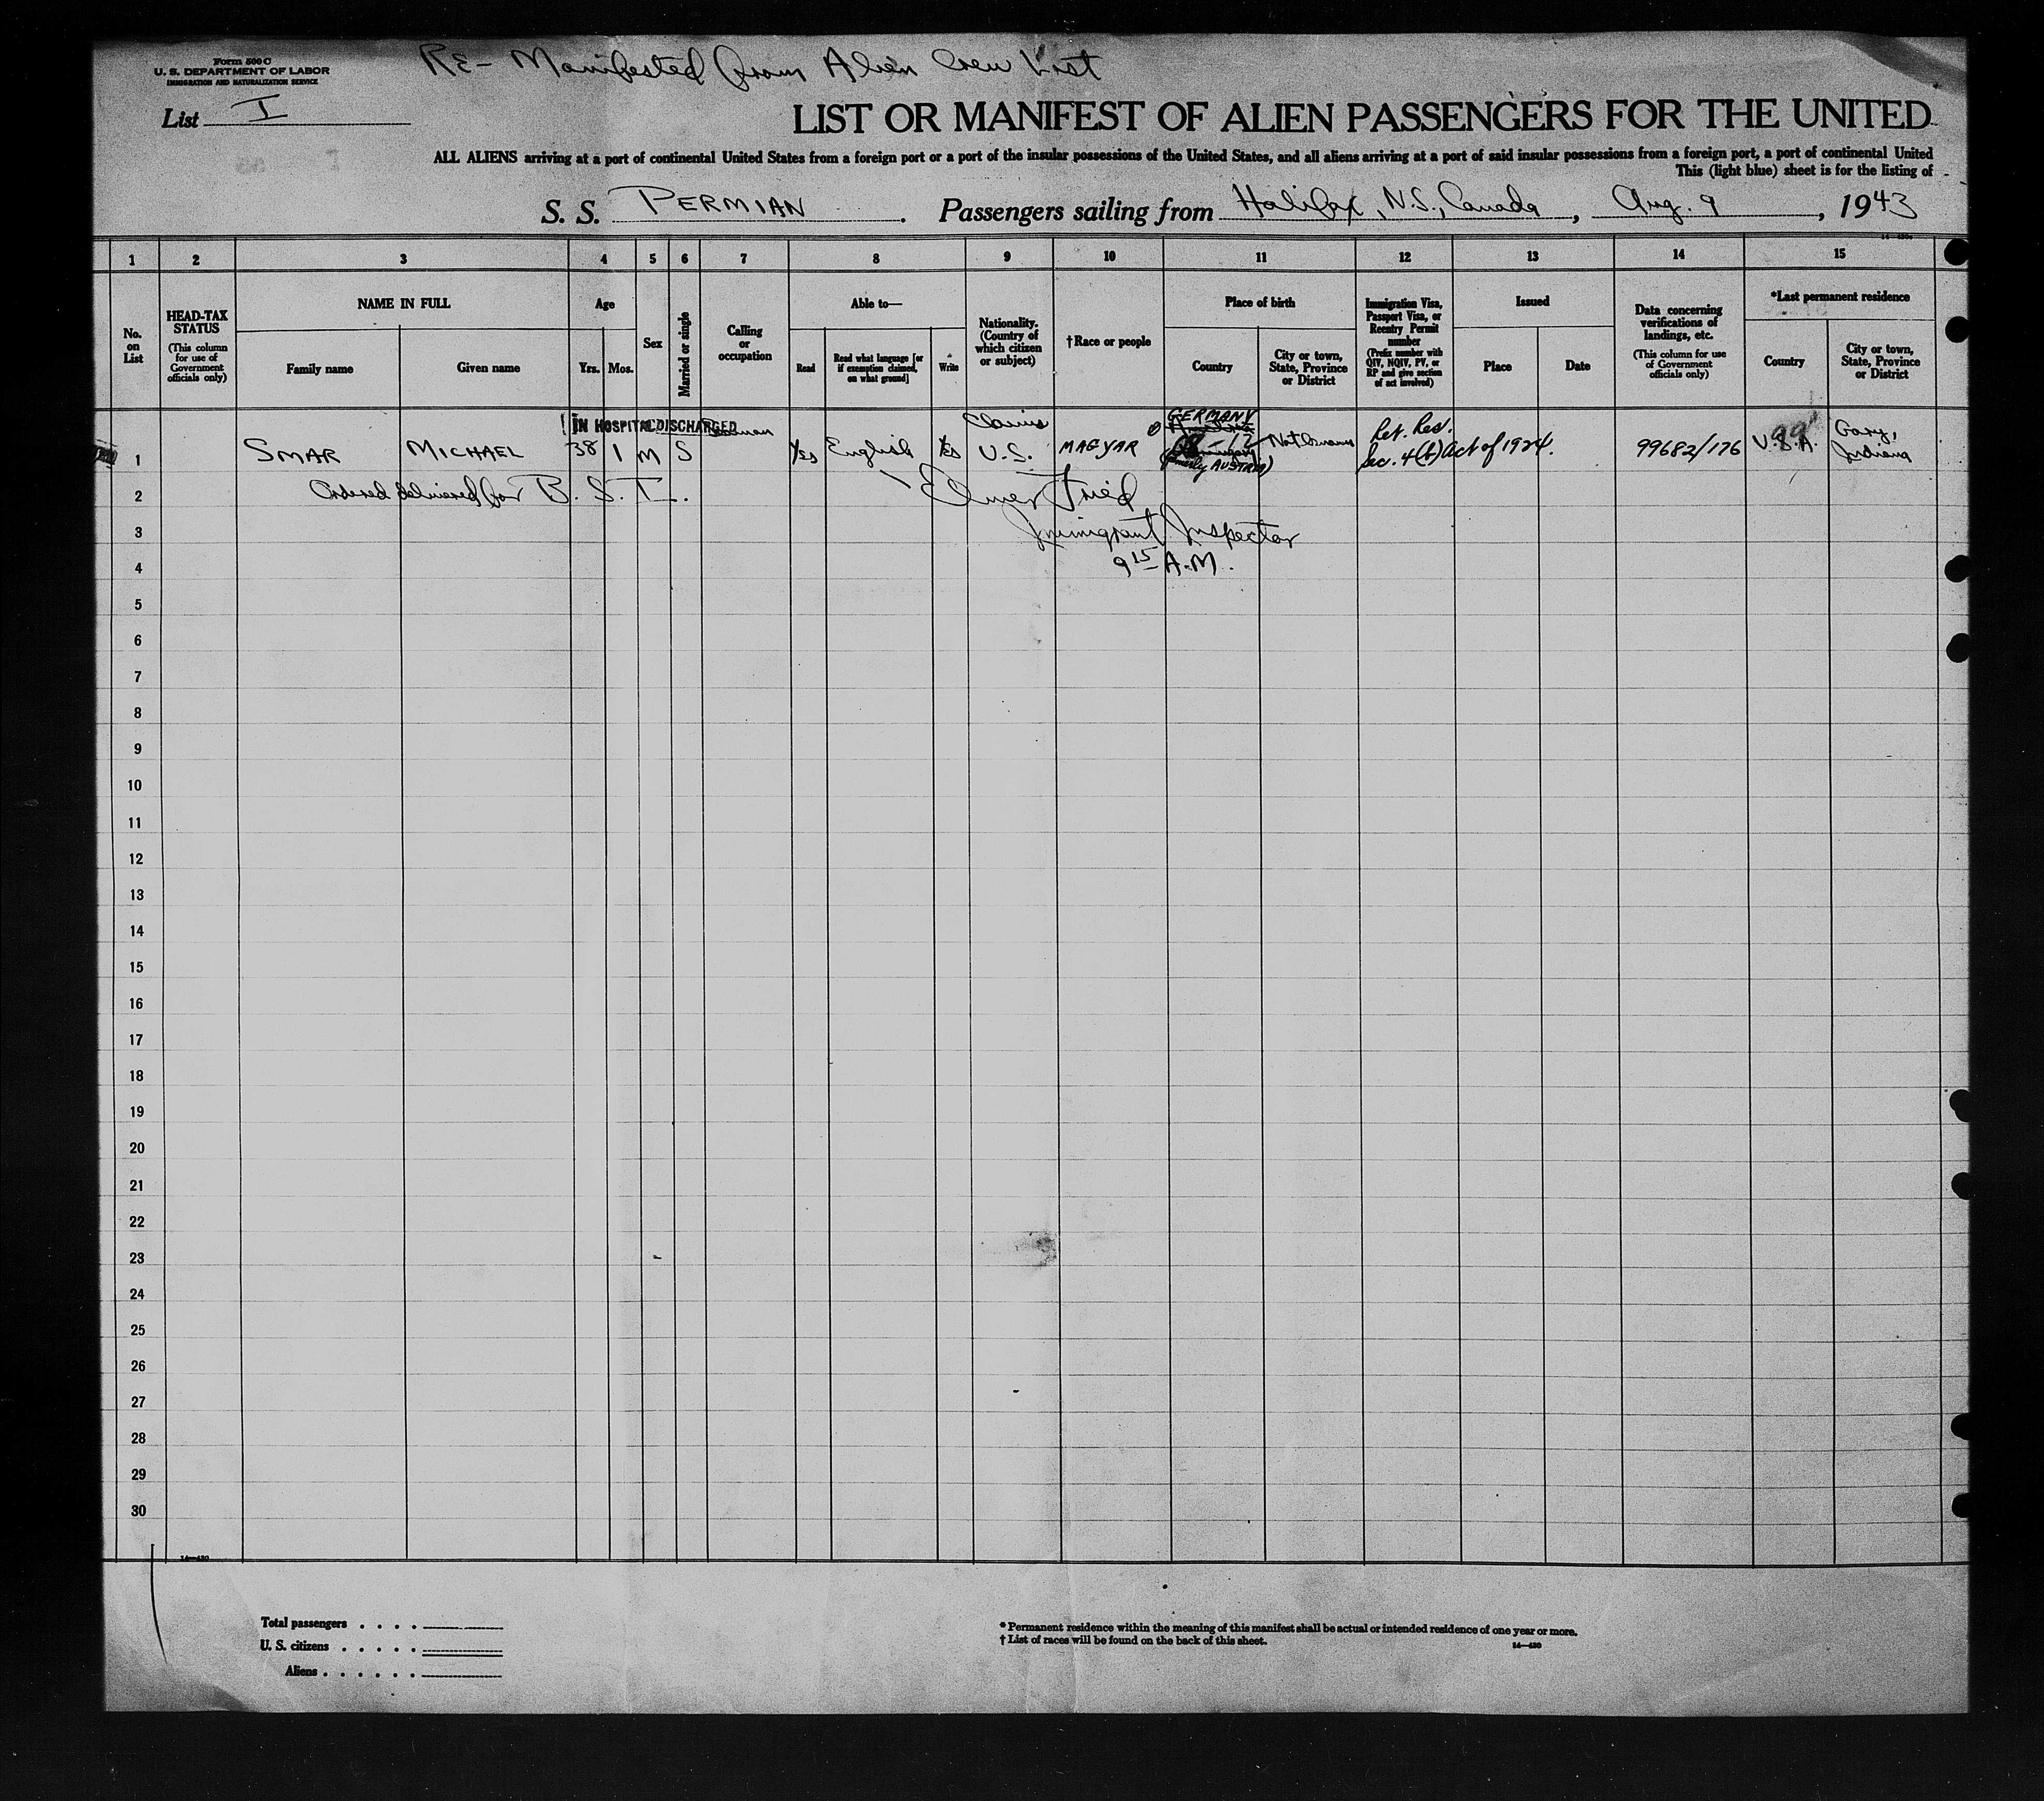 Form 500 C
U. S. DEPARTMENT OF LABOR
IMMIGRATION AND NATURALIZATION SERVICE
RE- Manifested from Alien Crew List
List I
LIST OR MANIFEST OF ALIEN PASSENGERS FOR THE UNITED
ALL ALIENS arriving at a port of continental United States from a foreign port or a port of the insular possessions of the United States, and all aliens arriving at a port of said insular possessions from a foreign port, a port of continental United
This (light blue) sheet is for the listing of
S. S. PERMIAN. Passengers sailing from Halifax, N.S., Canada, Aug. 9, 1943
1 2 3 4 5 6 7 8 9 10 11 12 13 14 15
No. on List
HEAD-TAX STATUS (This column for use of Government officials only)
NAME IN FULL
Family name
Given name
Age
Yrs.
Mos.
Sex
Married or single
Calling or occupation
Able to—
Read
Read what language [or if exemption claimed, on what ground]
Write
Nationality. (Country of which citizen or subject)
†Race or people
Place of birth
Country
City or town, State, Province or District
Immigration Visa, Passport Visa, or Reentry Permit number (Prefix number with QIV, NQIV, PV, or RP and give section of act involved)
Issued
Place
Date
Data concerning verifications of landings, etc. (This column for use of Government officials only)
*Last permanent residence
Country
City or town, State, Province or District
IN HOSPITAL DISCHARGED
1 SMAR MICHAEL 38 1 M S Seaman Yes English Yes Claims U.S. MAGYAR GERMANY (formerly AUSTRIA) Ret. Res. Sec. 4(b) Act of 1924. 99682/176 U.S.A. 99 Gary, Indiana
2 Ordered delivered for B. S. I. Elmer Fried
3 Immigrant Inspector
4 9 15 A.M.
5
6
7
8
9
10
11
12
13
14
15
16
17
18
19
20
21
22
23
24
25
26
27
28
29
30
14—430
Total passengers . . . .
U. S. citizens . . . . .
Aliens . . . . . .
* Permanent residence within the meaning of this manifest shall be actual or intended residence of one year or more.
† List of races will be found on the back of this sheet. 14—430